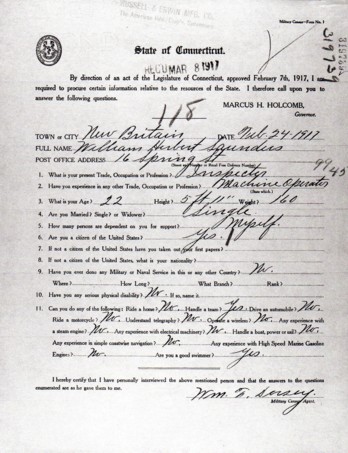 Military Census—Form No. 1
State of Connecticut.
RECD MAR 8 1917
By direction of an act of the Legislature of Connecticut, approved February 7th, 1917, I am
required to procure certain information relative to the resources of the State. I therefore call upon you to
answer the following questions.
MARCUS H. HOLCOMB,
Governor.
118
TOWN or CITY New Britain DATE Feb 24 1917
FULL NAME William Saunders
POST OFFICE ADDRESS 16 Spring St
1. What is your present Trade, Occupation or Profession? Inspector
2. Have you experience in any other Trade, Occupation or Profession? Machine Operator
3. What is your Age? 22 Height? 5 ft 11" Weight? 160
4. Are you Married? Single? or Widower? Single
5. How many persons are dependent on you for support? Myself.
6. Are you a citizen of the United States? Yes.
7. If not a citizen of the United States have you taken out your first papers?
8. If not a citizen of the United States, what is your nationality?
9. Have you ever done any Military or Naval Service in this or any other Country? No.
Where? How Long? What Branch? Rank?
10. Have you any serious physical disability? No. If so, name it.
11. Can you do any of the following: Ride a horse? No. Handle a team? Yes. Drive an automobile? No.
Ride a motorcycle? No. Understand telegraphy? No. Operate a wireless? No. Any experience with
a steam engine? No. Any experience with electrical machinery? No. Handle a boat, power or sail? No.
Any experience in simple coastwise navigation? No. Any experience with High Speed Marine Gasoline
Engines? No. Are you a good swimmer? Yes.
I hereby certify that I have personally interviewed the above mentioned person and that the answers to the questions
enumerated are as he gave them to me.
Wm. F. Dorsey.
Military Census Agent.